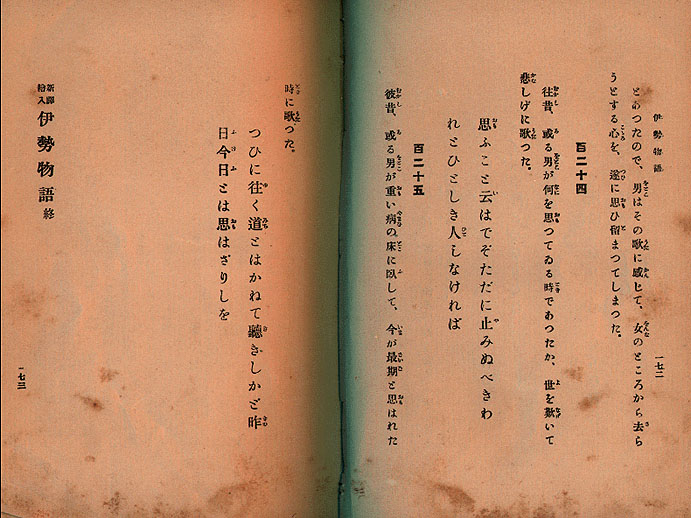 伊勢物語
一七二
とあつたので、男はその歌に感じて、女のところから去ら
うとする心を、遂に思ひ留まつてしまつた。
百二十四
往昔、或る男が何を思つてゐる時であつたか、世を歎いて
悲しげに歌つた。
思ふこと云はでぞただに止みぬべきわ
れとひとしき人しなければ
百二十五
彼昔、或る男が重い病の床に臥して、今が最期と思はれた
時に歌つた。
つひに往く道とはかねて聽きしかど昨
日今日とは思はざりしを
新譯
繪入
伊勢物語 終
一七三